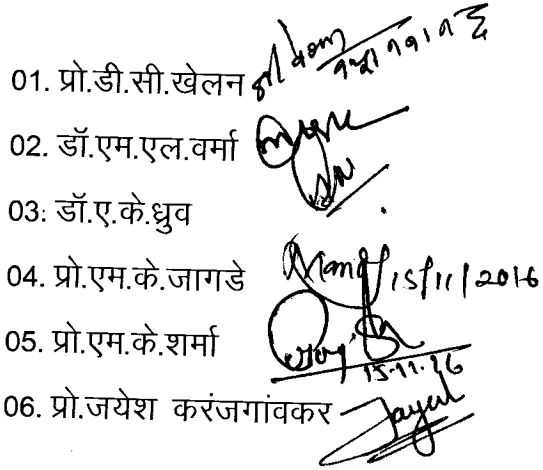 01. प्रो.डी.सी.खेलन
02. डॉ.एम.एल.वर्मा
03: डॉ.ए.के.ध्रुव
04. प्रो.एम.के.जागडे 15/11/2016
05. प्रो.एम.के.शर्मा
15.11.16
06. प्रो.जयेश करंजगांवकर Jayesh